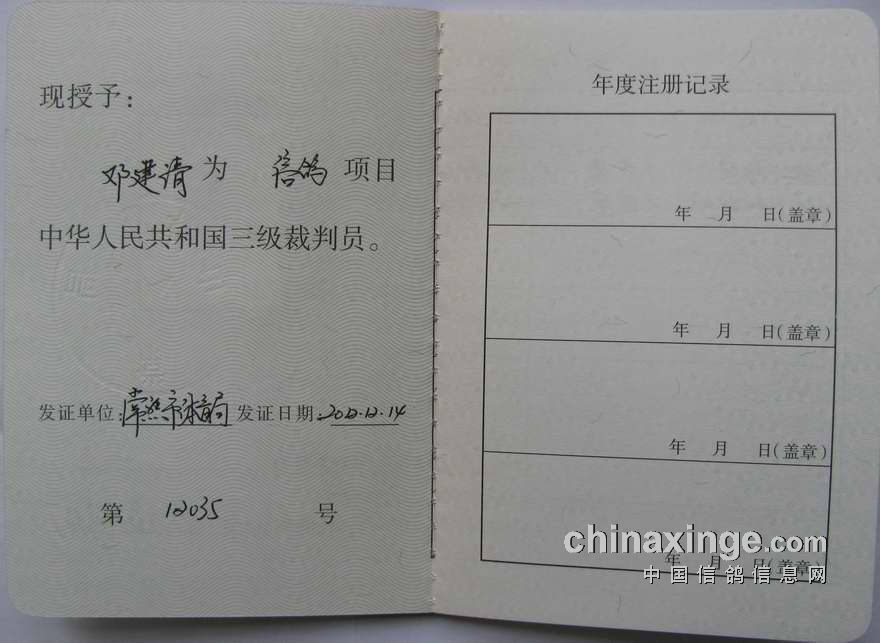 现授予：
邓建清 为 信鸽 项目
中华人民共和国三级裁判员。
发证单位：常熟市体育局 发证日期：2012.12.14
第 12035 号
年度注册记录
年 月 日(盖章)
年 月 日(盖章)
年 月 日(盖章)
年 月 日(盖章)
chinaxinge.com
中国信鸽信息网